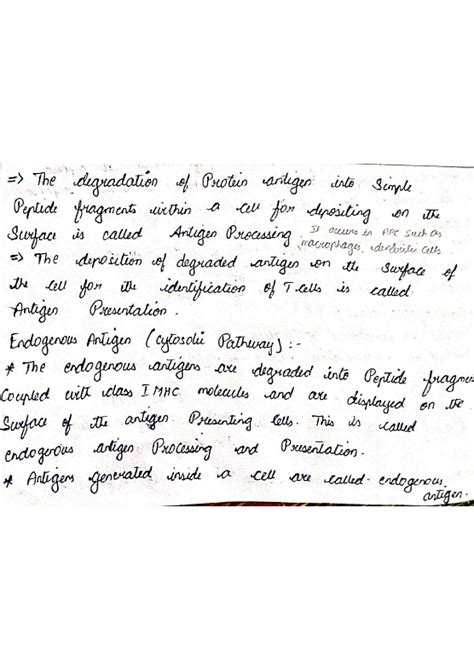 => The degradation of Protein antigen into Simple
Peptide fragments within a cell for depositing on the
Surface is called Antigen Processing. It occurs in APC such as
macrophages, dendritic cells.
=> The deposition of degraded antigen on the Surface of
the cell for the identification of T cells is called
Antigen Presentation.
Endogenous Antigen (Cytosolic Pathway) :-
* The endogenous antigens are degraded into Peptide fragmen
Coupled with class I MHC molecules and are displayed on the
Surface of the antigen Presenting Cells. This is called
endogenous antigen Processing and Presentation.
* Antigens generated inside a cell are called endogenous
antigen.